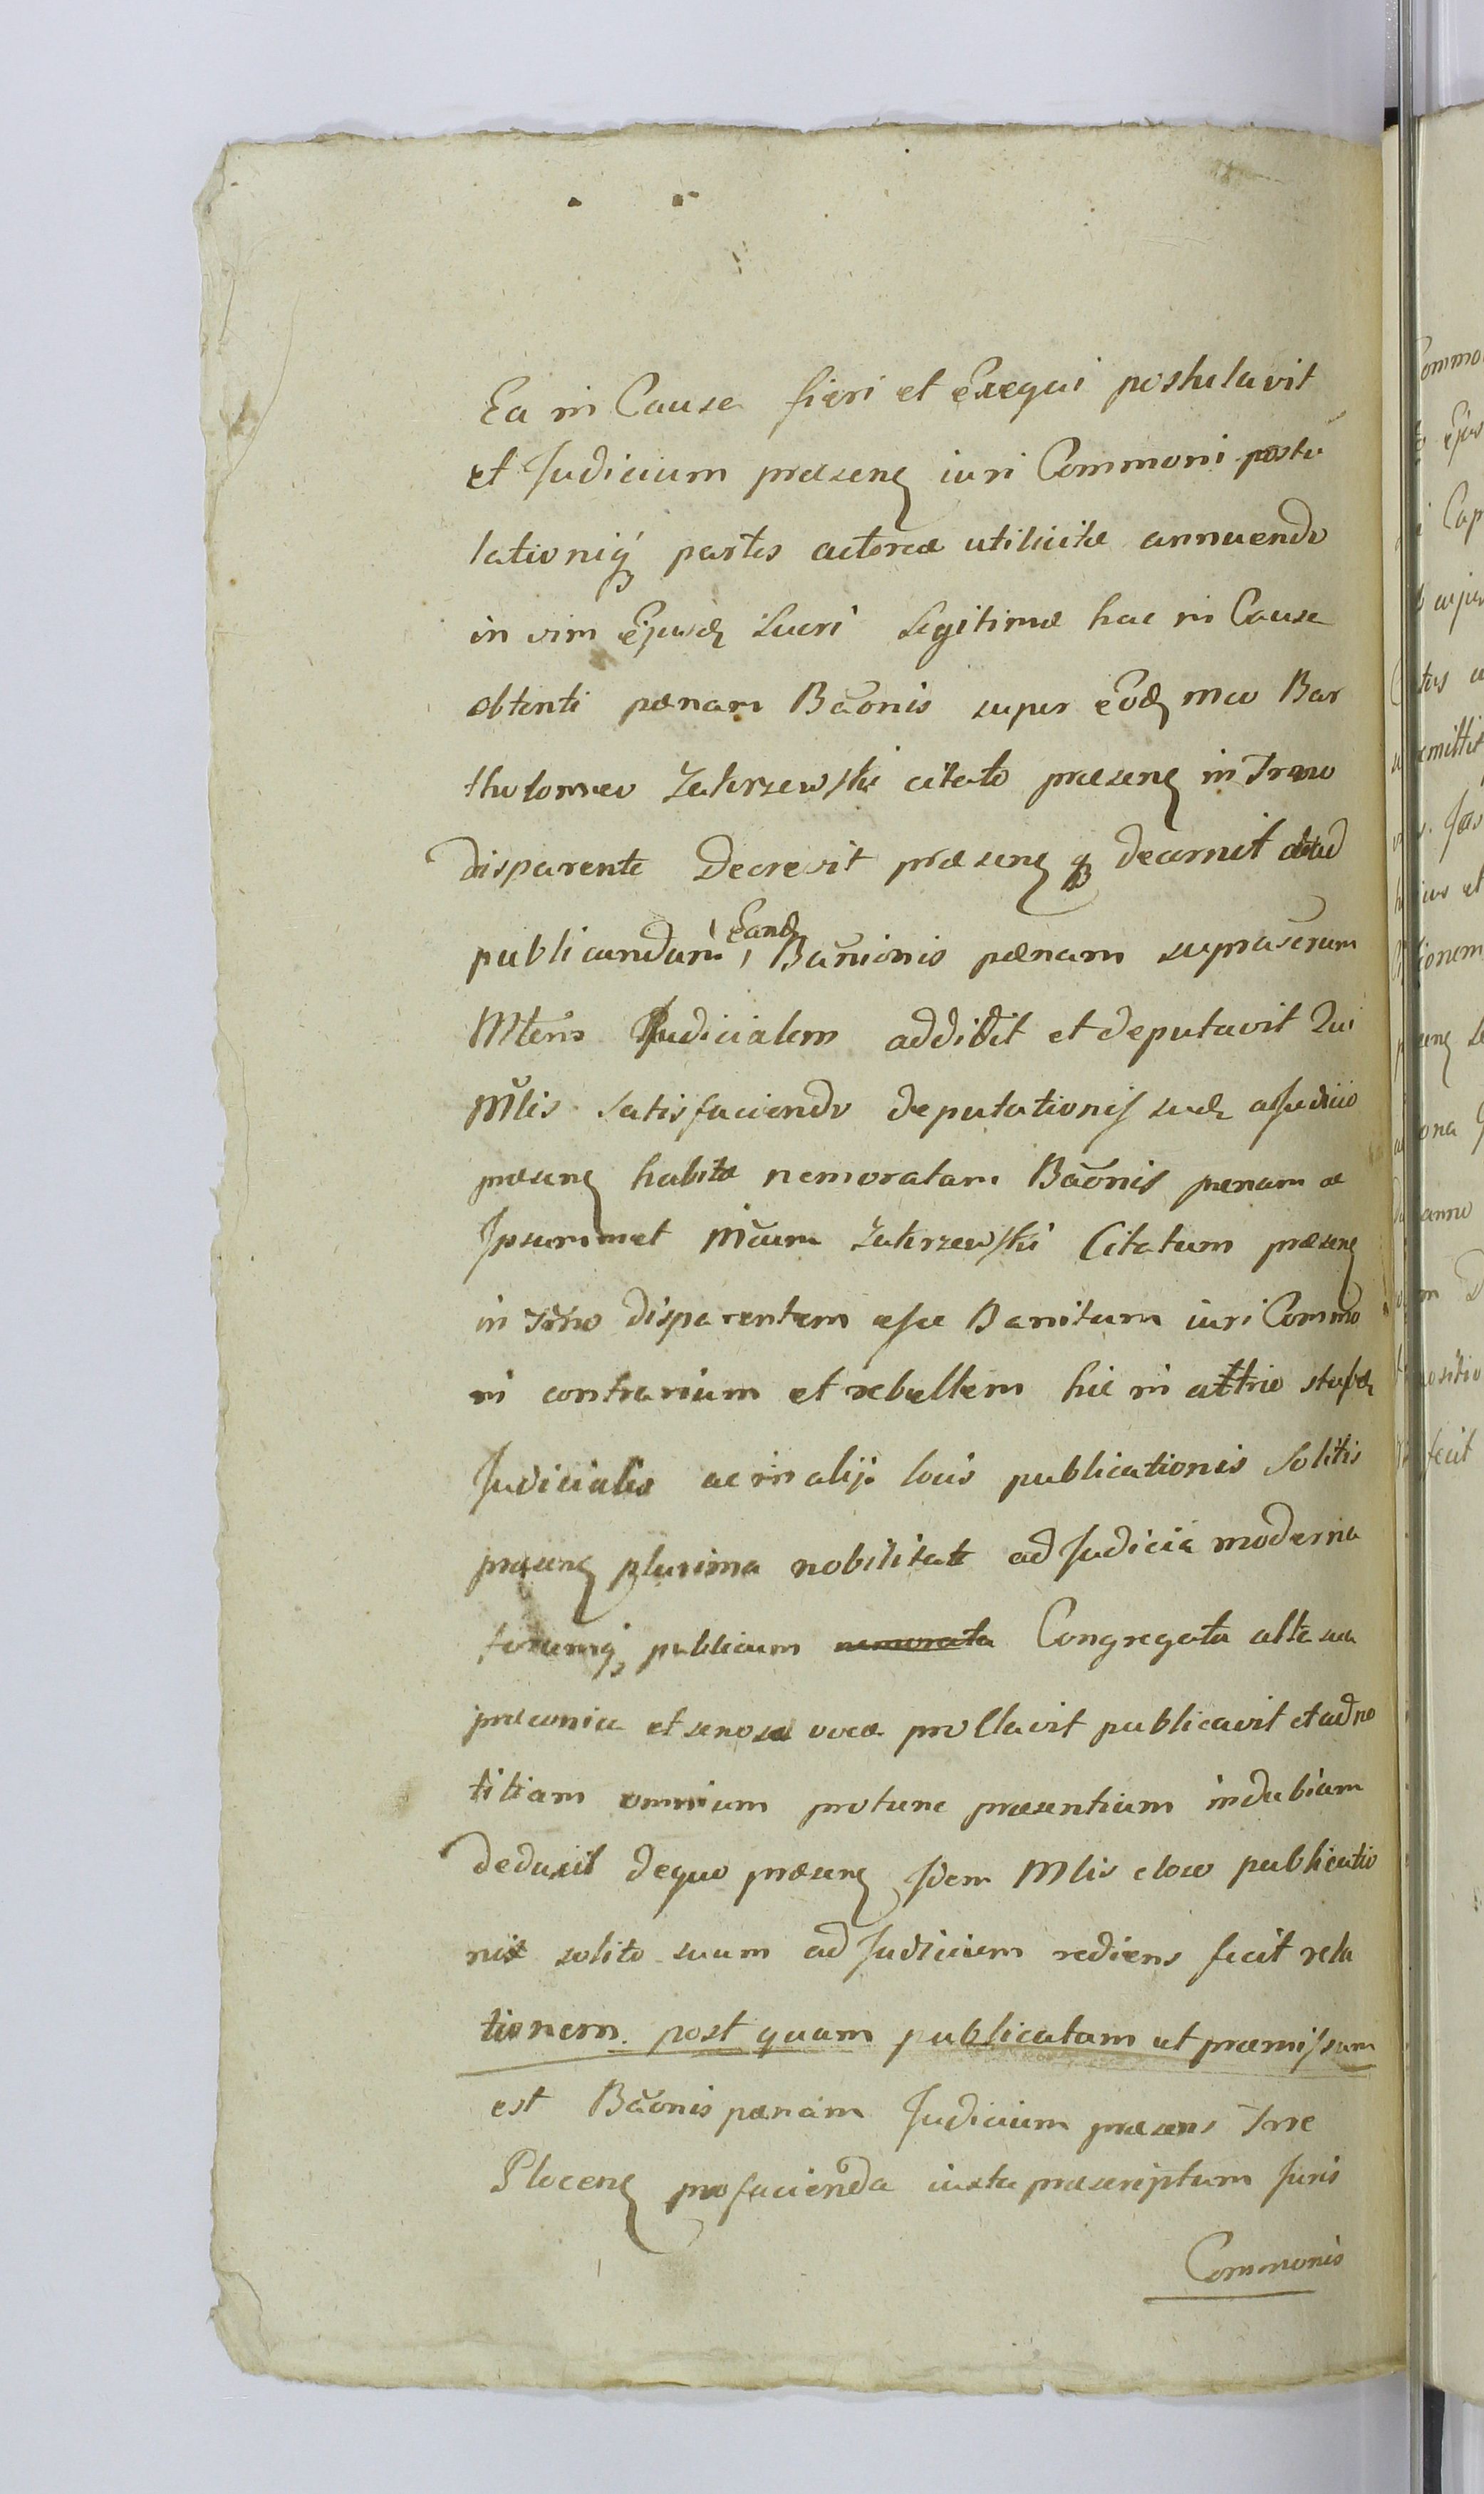 Ea in Causa fieri et Exequi postulavit
et Judicium præsens iuri Commoni postu
lationiq partis actoreæ utiliter annuendo
in vim Ejusd lucri legitimæ hac in Causa
obtenti pœnam Bãonis super eod mco Bar
tholomeo Zakrzewski citato præsens in Trno
disparente Decrevit præsensq decernit ad
publicandam Eand Bannionis pœnam suprascrum
Mtens Judicialem addidit et deputavit Qui
Mlis satisfaciendo deputationis suæ a Judicio
præsens habitæ nemoratam Bãonis penam ac
Ipsummet Mcum Zakrzewski Citatum præsens
in Trno disparentem esse Banitum iuri Commo
ni contrarium et rebellem hic in attrio stubæ
Judicialis ac in alijs locis publicationis solitis
præsens plurima nobilitate ad Judicia moderna
forumq publicum nemorata Congregata alta sua
præconia et senosa voce procllavit publicavit et ad no
titiam omnium protunc præsentium indubiam
deduxit de quo præsens Idem Mlis eloco publicatio
nis solito suum ad Judicium rediens fecit rela
tionem. post quam publicatam ut præmissum
est Bãonis pœnam Judicium præsens Trre
Plocens pro facienda iuxta præscriptum Juris
Commonis